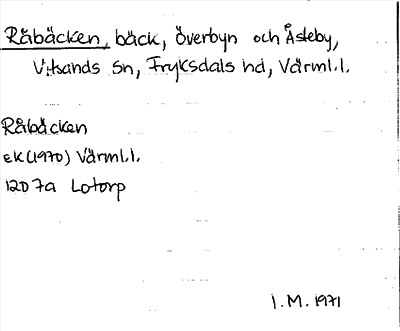 Råbäcken, bäck, Överbyn och Åsteby,
Vitsands sn, Fryksdals hd, Värml.l.
Råbäcken
ek(1970) Värml.l.
12D 7a Lotorp
I.M. 1971